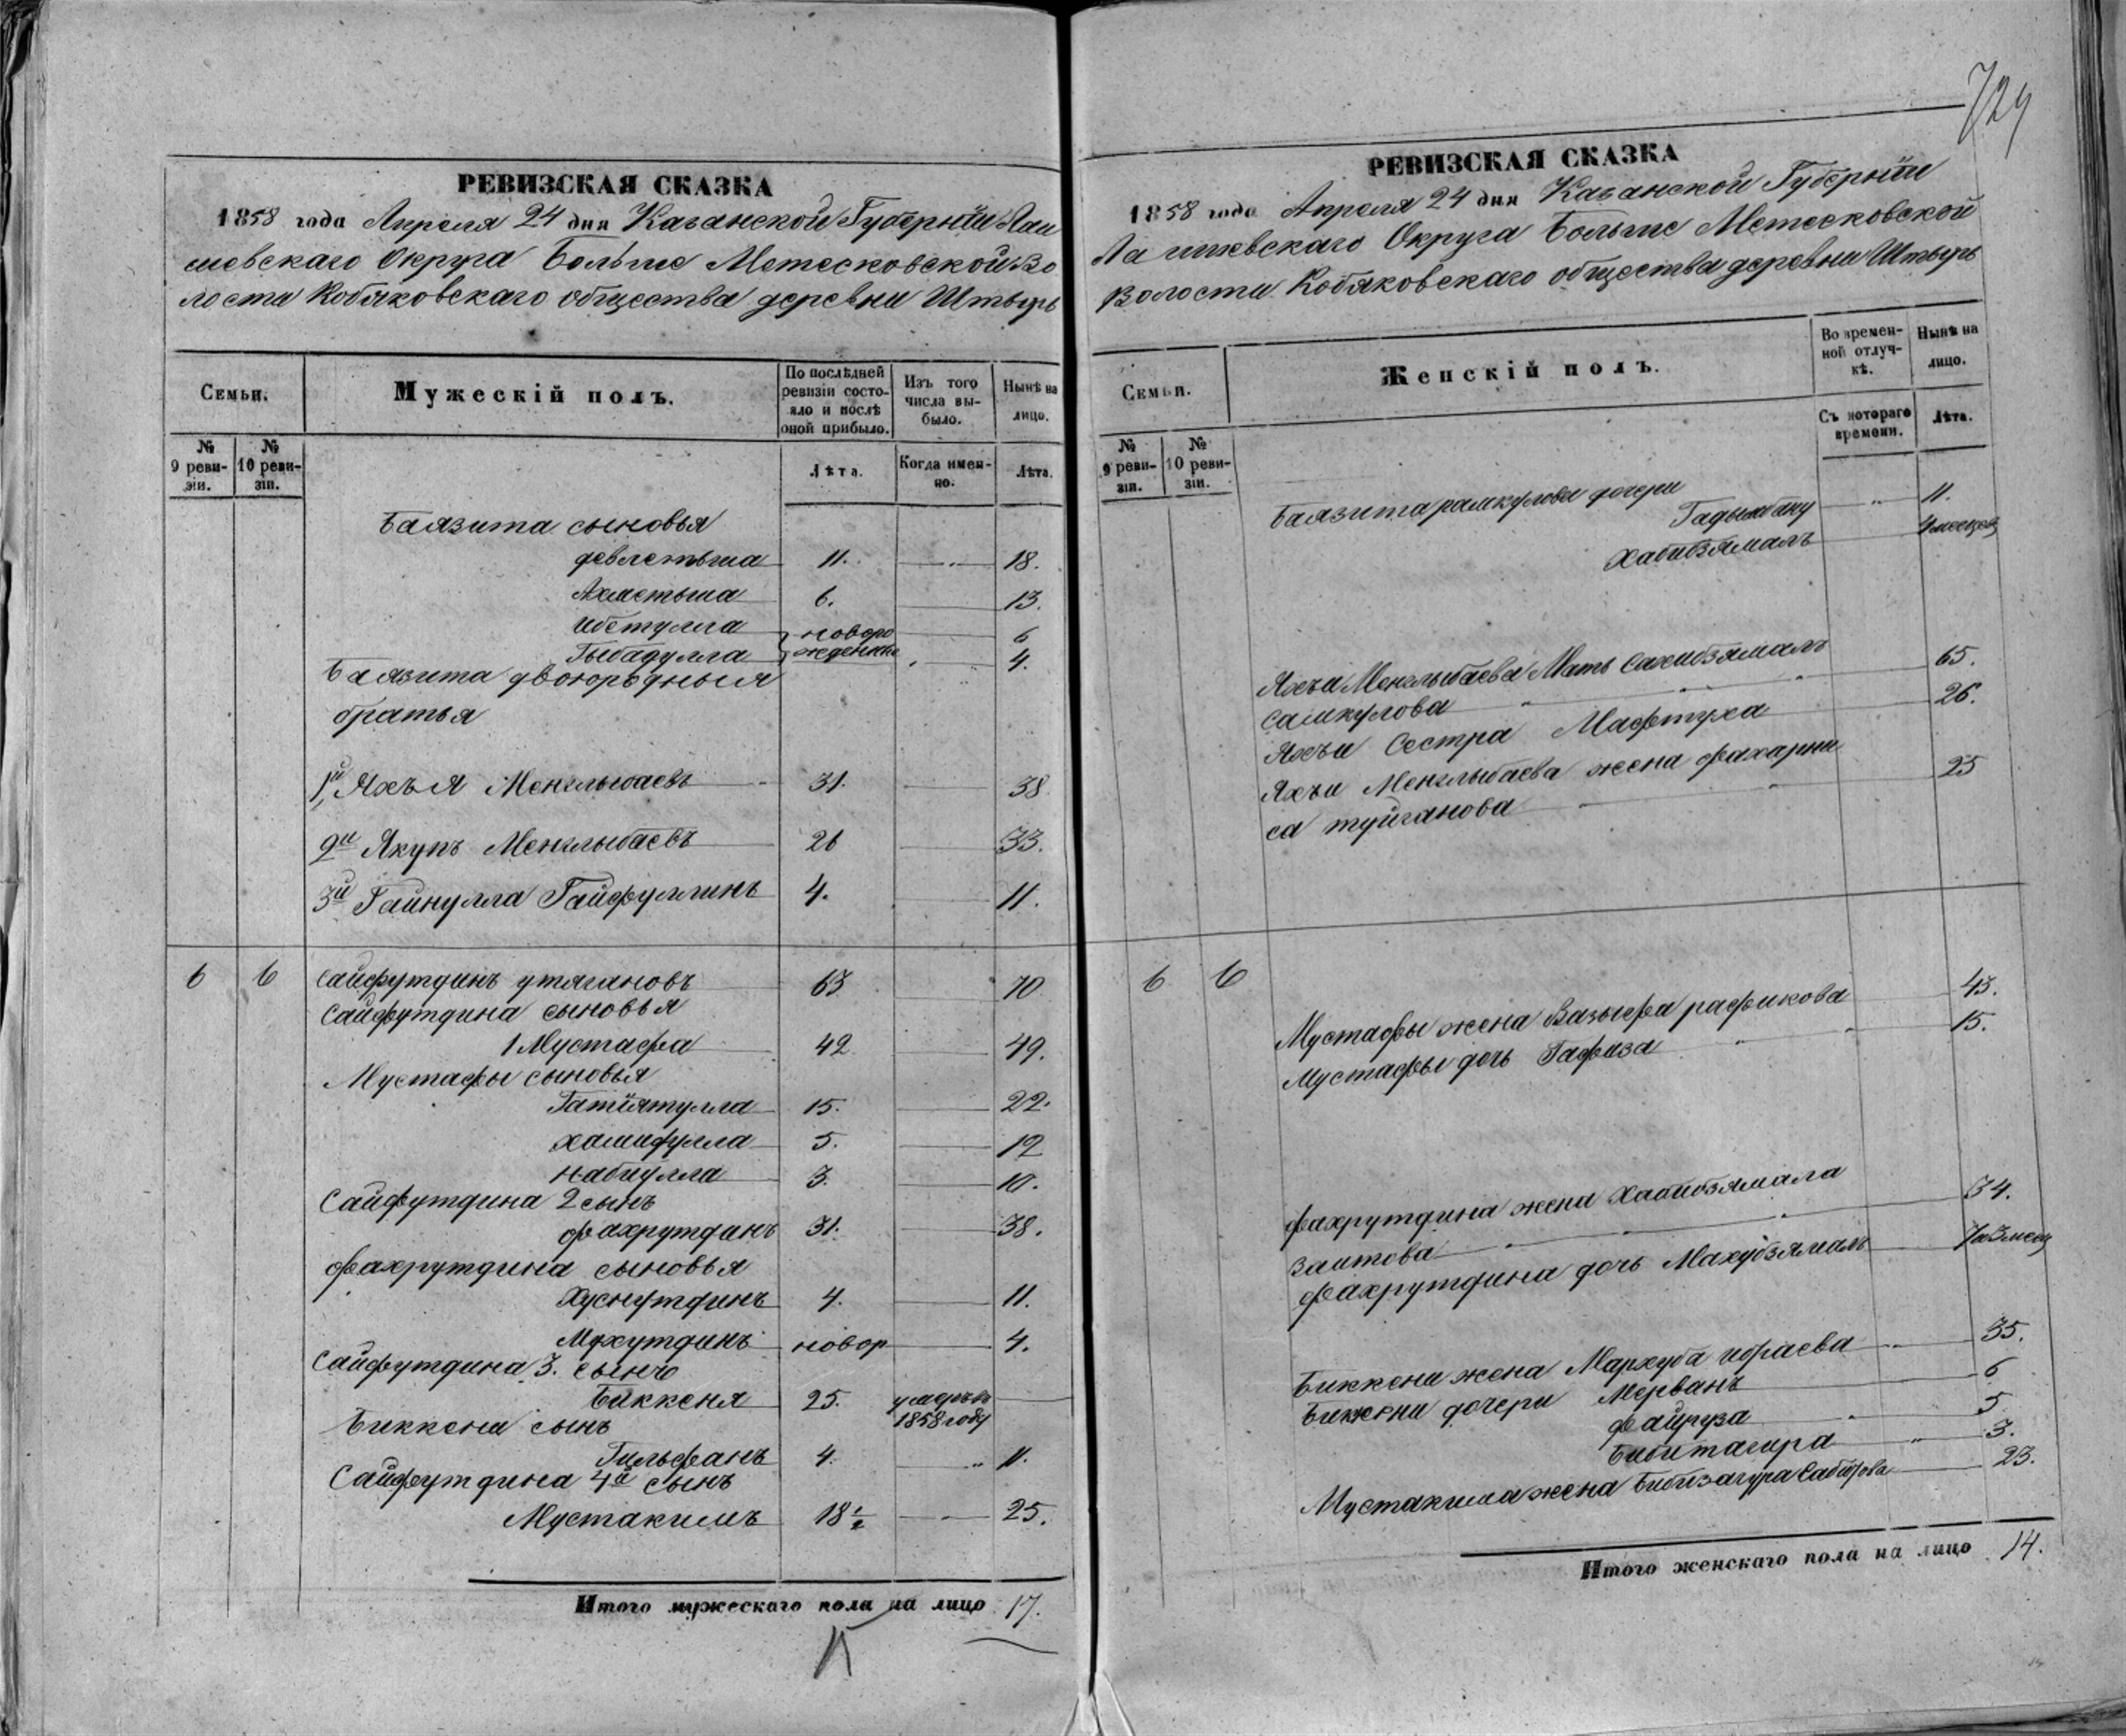 РЕВИЗСКАЯ СКАЗКА
1858 года Апреля 24 дня Казанской Губерніи Лаи
шевскаго Округа Больше Метесковской Во
лости Кобяковскаго общества деревни Штырь
Семьи.
Мужескій полъ.
По послѣдней ревизіи состояло и послѣ оной прибыло.
Изъ того числа выбыло.
Нынѣ на лицо.
№ 9 реви-зіи.
№ 10 реви-зіи.
Лѣта.
Когда имен-но.
Лѣта.
Баязита сыновья
девлетьша 11. 18.
Ахметьша 6. 13.
Ибетулла новоро 6
Гыбадулла жденные 4.
Баязита двоюродныя
братья
1й Яхъя Менглыбаевъ 31. 38
2й Якупъ Менглыбаевъ 26 33.
3й Гайнулла Гайфуллинъ 4. 11.
6 6 Сайфутдинъ утягановъ 63 70
Сайфутдина сыновья
1 Мустафа 42 49.
Мустафы сыновья
Гатіятулла 15. 22.
Хашифулла 5. 12
Набиулла 3. 10.
Сайфутдина 2 сынъ
Фахрутдинъ 31. 38.
Фахрутдина сыновья
Хуснутдинъ 4. 11.
Мухутдинъ новор 4.
Сайфутдина 3. сынъ
Биккеня 25. умръ въ
1858 году
Биккени сынъ
Гильфанъ 4. 11.
Сайфутдина 4й сынъ
Мустакимъ 18½ 25.
Итого мужескаго пола на лицо 17.
729
РЕВИЗСКАЯ СКАЗКА
1858 года Апреля 24 дня Казанской Губерніи
Лаишевскаго Округа Больше Метесковской
Волости Кобяковскаго общества деревни Штырь
Семьи.
Женскій полъ.
Во времен-ной отлуч-кѣ.
Нынѣ на лицо.
№ 9 реви-зіи.
№ 10 реви-зіи.
Съ котораго времени.
Лѣта.
Баязита рашкулова дочери
Гадымбану 11.
Хабибзямалъ 4 месецов
Яхъи Менглыбаева Мать Сахибзямалъ
Сашкулова 65.
Яхъи Сестра Мафтуха 26.
Яхъи Менглыбаева жена фахарни
са туйганова 25
6 6
Мустафы жена Вазыфа рафикова 43.
Мустафы дочь Гафиза 15.
Фахрутдина жена Хабибзямала
Заитова 34.
Фахрутдина дочь Махубзямалъ
Биккени жена Мархуба ибраева 35.
Биккени дочери Мерванъ 6
Файруза 5
Бибитагира 3.
Мустакима жена Бибизагура Сабирова 23.
Итого женскаго пола на лицо 14.